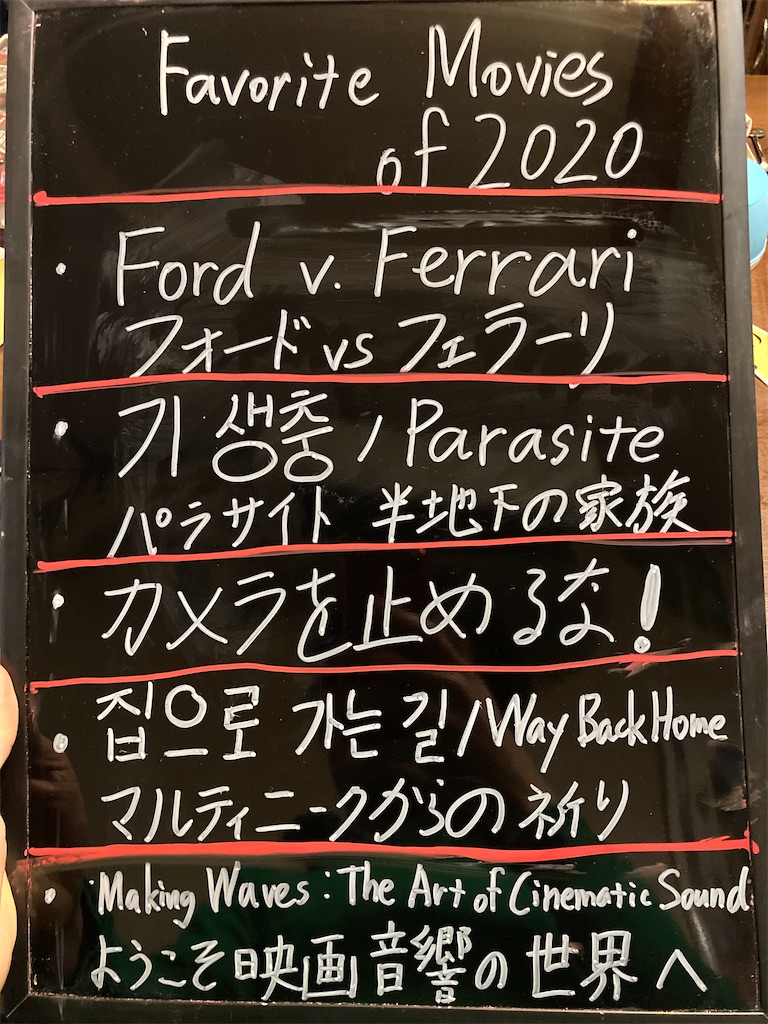 Favorite Movies
of 2020
・ Ford v. Ferrari
フォード vs フェラーリ
・ 기생충 / Parasite
パラサイト 半地下の家族
・ カメラを止めるな!
・ 집으로 가는 길 / Way Back Home
マルティニークからの祈り
・ Making Waves : The Art of Cinematic Sound
ようこそ映画音響の世界へ